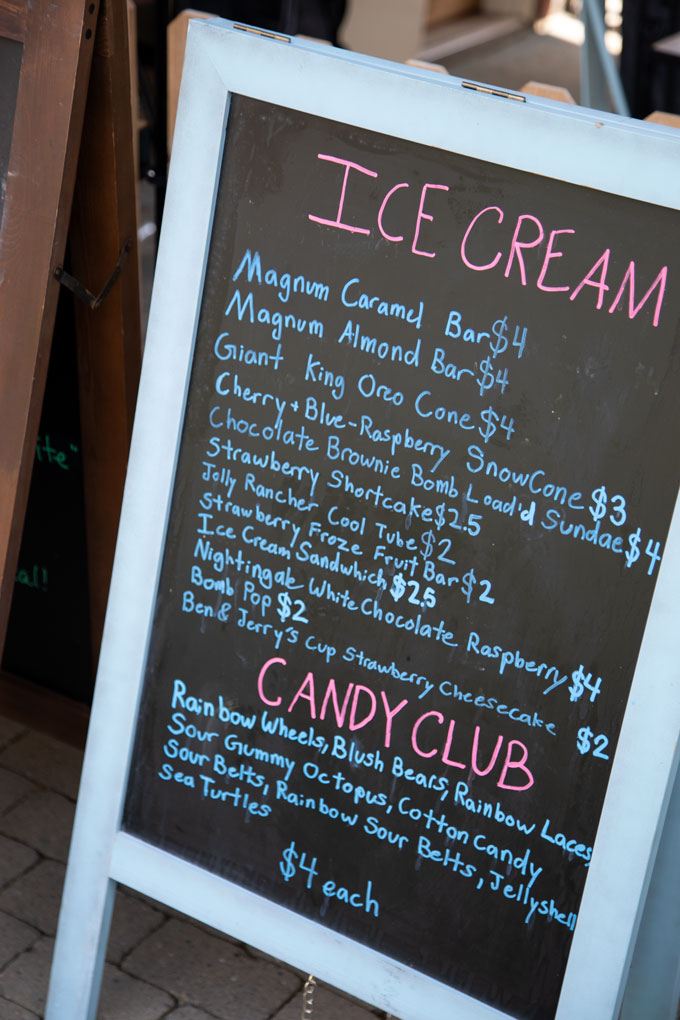 ICE CREAM
Magnum Caramel Bar $4
Magnum Almond Bar $4
Giant King Oreo Cone $4
Cherry + Blue-Raspberry SnowCone $3
Chocolate Brownie Bomb Load'd Sundae $4
Strawberry Shortcake $2.5
Jolly Rancher Cool Tube $2
Strawberry Froze Fruit Bar $2
Ice Cream Sandwhich $2.5
Nightingale White Chocolate Raspberry $4
Bomb Pop $2
Ben & Jerry's Cup Strawberry Cheesecake $2
CANDY CLUB
Rainbow Wheels, Blush Bears, Rainbow Laces
Sour Gummy Octopus, Cotton Candy
Sour Belts, Rainbow Sour Belts, Jellyshell
Sea Turtles
$4 each